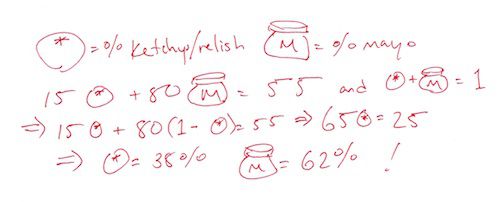 * = % Ketchup/relish M = % mayo
15 * + 80 M = 55 and * + M = 1
⇒ 15 * + 80(1 - *) = 55 ⇒ 65 * = 25
⇒ * = 38% M = 62% !